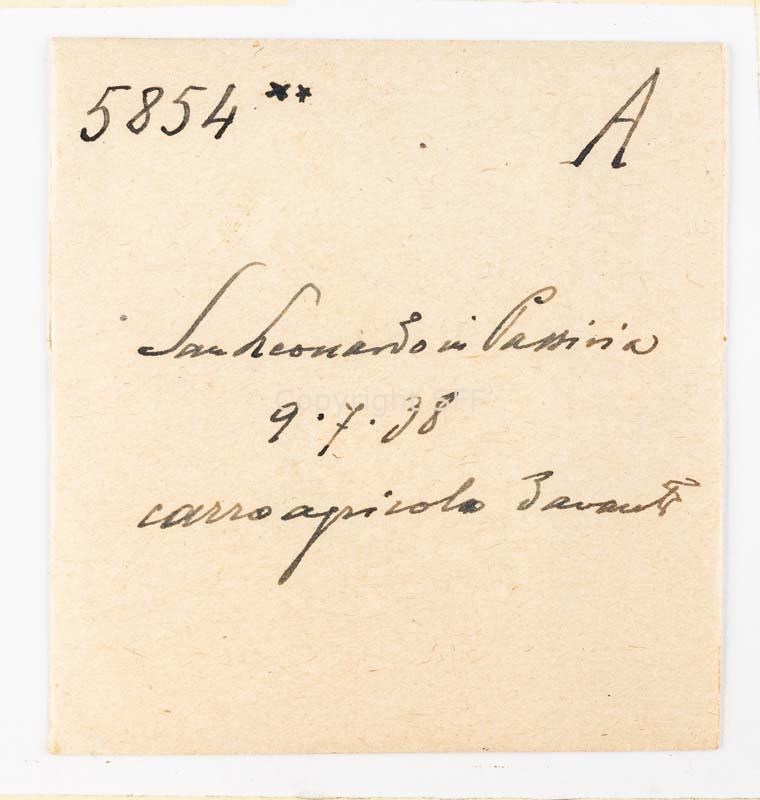 5854** A
San Leonardo in Passiria
9.7.38
carro agricolo davanti